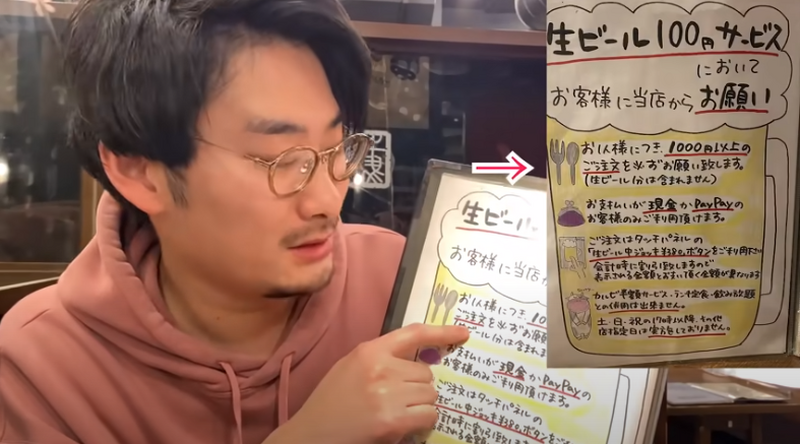 生ビール
お客様に当店
お1人様につき、10
ご注文を必ずお願
生ビール分は含まれま
お支払いが現金かPayPayの
お客様のみご利用頂けます。
ご注文はタッチパネルの
生ビール中ジョッキ¥380ボタン
会計時に割引致します
表示される金額
生ビール100円サービス
において
お客様に当店からお願い
お1人様につき、1000円以上の
ご注文を必ずお願い致します。
(生ビール分は含まれません)
お支払いが現金かPayPayの
お客様のみご利用頂けます。
ご注文はタッチパネルの
「生ビール中ジョッキ¥380」ボタンをご利用下さい
会計時に割引致しますので
表示される金額とお支い頂く金額が異なります
カルビ半額サービス・ランチ定食・飲み放題
との併用は出来ません。
土・日・祝の17時以降、その他
店指定日は実施しておりません。